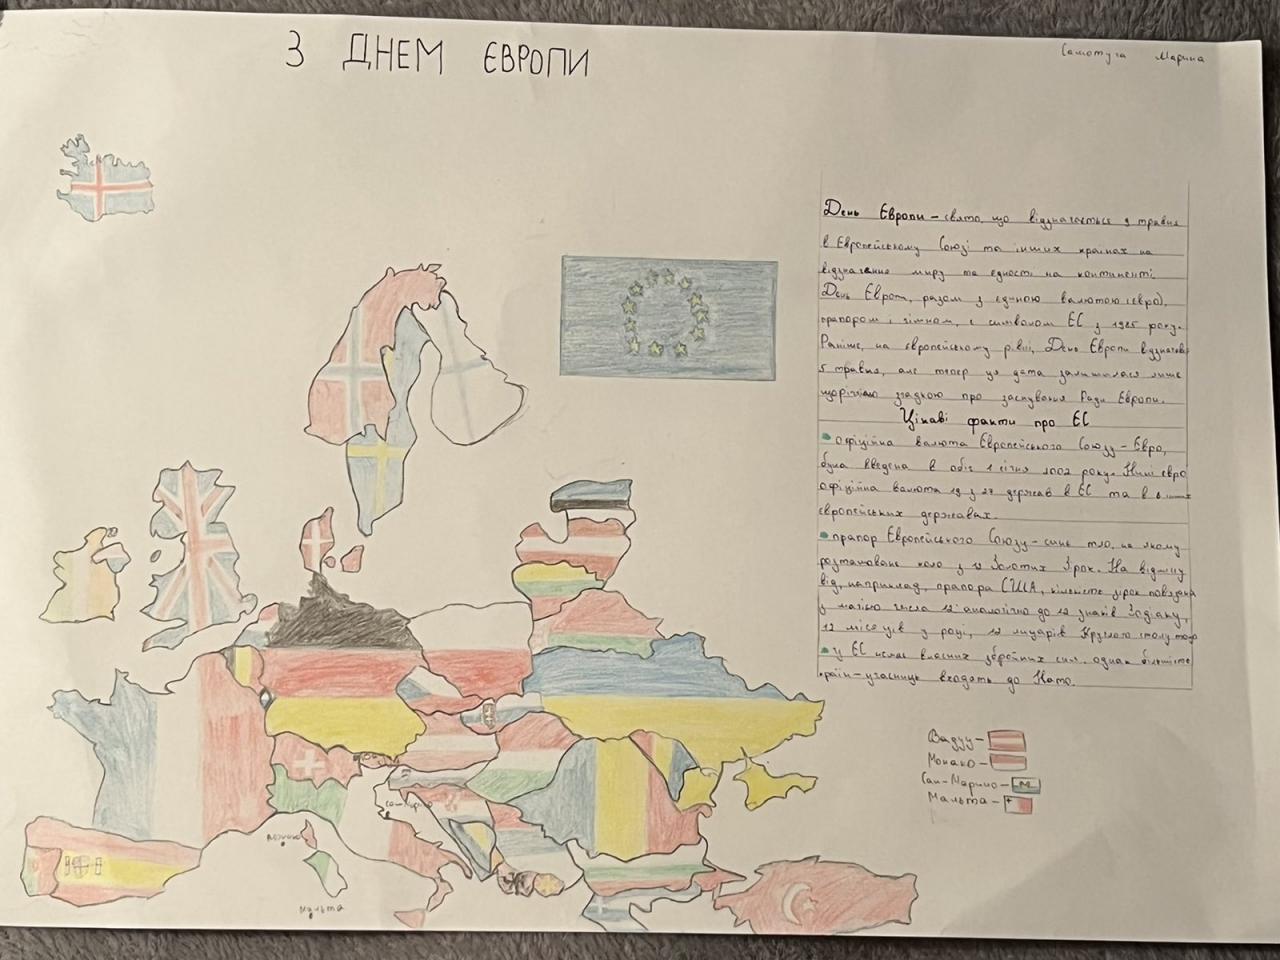 З ДНЕМ ЄВРОПИ
Самотуга Марина
День Європи – свято, що відзначається 9 травня
в Європейському Союзі та інших країнах на
відзначення миру та єдності на континенті.
День Європи, разом з єдиною валютою (євро),
прапором і гімном, є символом ЄС з 1985 року.
Раніше, на європейському рівні, День Європи відзначав
5 травня, але тепер ця дата залишилася лише
щорічною згадкою про заснування Ради Європи.
Цікаві факти про ЄС
• офіційна валюта Європейського Союзу – Євро,
була введена в обіг 1 січня 2002 року. Нині євро
офіційна валюта 19 з 27 держав в ЄС та в 6 інших
європейських державах.
• прапор Європейського Союзу – синє тло, на якому
розташоване коло з 12 Золотих Зірок. На відміну
від, наприклад, прапора США, кількість зірок пов'язана
з магією числа 12: аналогічно до 12 знаків Зодіаку,
12 місяців у році, 12 лицарів Круглого столу тощо
• у ЄС немає власних збройних сил, однак більшість
країн-учасниць входять до Нато.
Вадуц –
Монако –
Сан-Марино –
Мальта –
Сан-Марино
Монако
Мальта